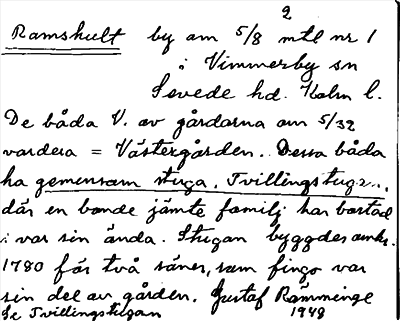 2
Ramshult by om 5/8 mtl nr 1
i Vimmerby sn
Sevede hd. Kalm l.
De båda V. av gårdarna om 5/32
vardera = Västergården. Dessa båda
ha gemensam stuga, Tvillingstugan,
där en bonde jämte familj har bostad
i var sin ända. Stugan byggdes omkr.
1780 för två söner, som fingo var
sin del av gården. Gustaf Rämminge
Se Tvillingstugan 1948